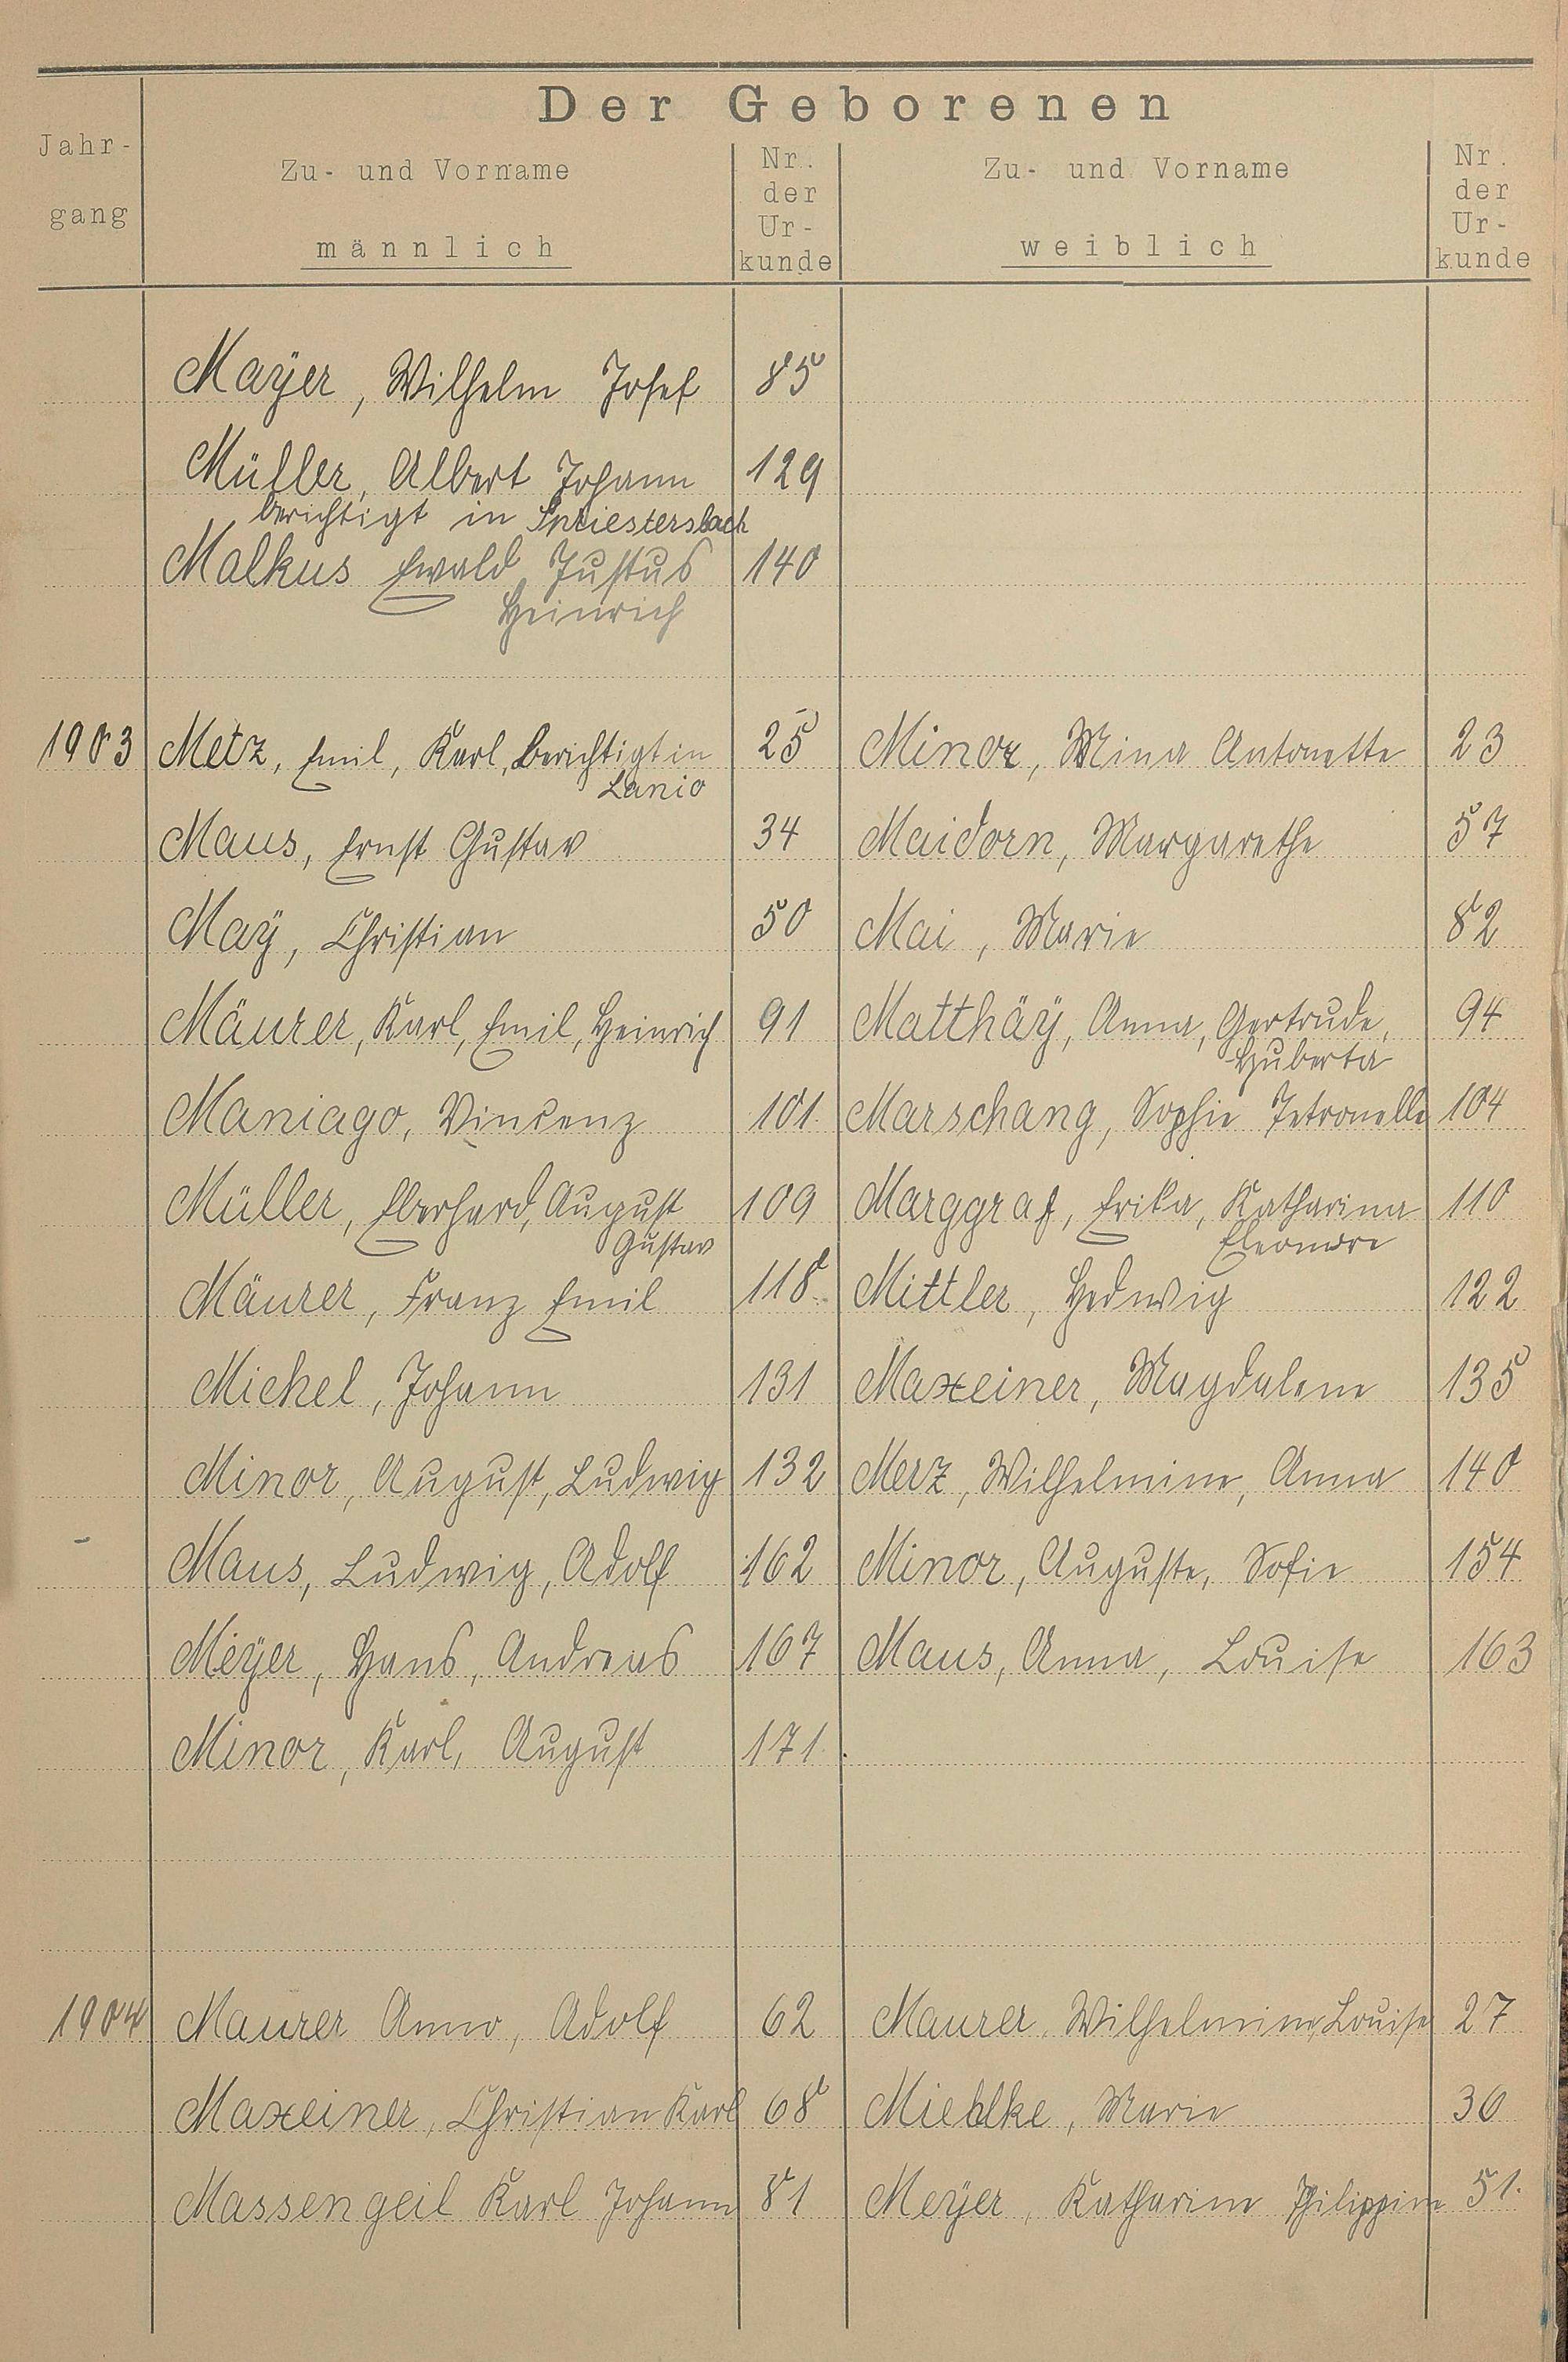 Der Geborenen
Jahr-
gang
Zu- und Vorname
männlich
Nr.
der
Ur-
kunde
Zu- und Vorname
weiblich
Nr.
der
Ur-
kunde
Mayer, Wilhelm Josef 85
Müller, Albert Johann 129
berichtigt in
Malkus Ewald Justus 140
Heinrich
1903 Metz, Emil, Karl, berichtigt in 25 Minor, Mina Antonette 23
Lanio
Maus, Ernst Gustav 34 Maidorn, Margarethe 57
Maÿ, Christian 50 Mai, Marie 82
Mäurer, Karl, Emil, Heinrich 91 Matthäÿ, Anna, Gertrude, 94
Huberta
Maniago, Vincenz 101 Marschang, Sophie Petronelle 104
Müller, Eberhard, August 109 Marggraf, Erika, Katharina 110
Gustav Eleonore
Mäurer, Franz Emil 118 Mittler, Hedwig 122
Michel, Johann 131 Maxeiner, Magdalene 135
Minor, August, Ludwig 132 Merz, Wilhelmine, Anna 140
Maus, Ludwig, Adolf 162 Minor, Auguste, Sofie 154
Meÿer, Hans, Andreas 167 Maus, Anna, Louise 163
Minor, Karl, August 171
1904 Maurer Anno, Adolf 62 Maurer, Wilhelmine, Louise 27
Maxeiner, Christian Karl 68 Marie 36
Massengeil Karl Johann 81 Meÿer, Katharine Philippine 51.